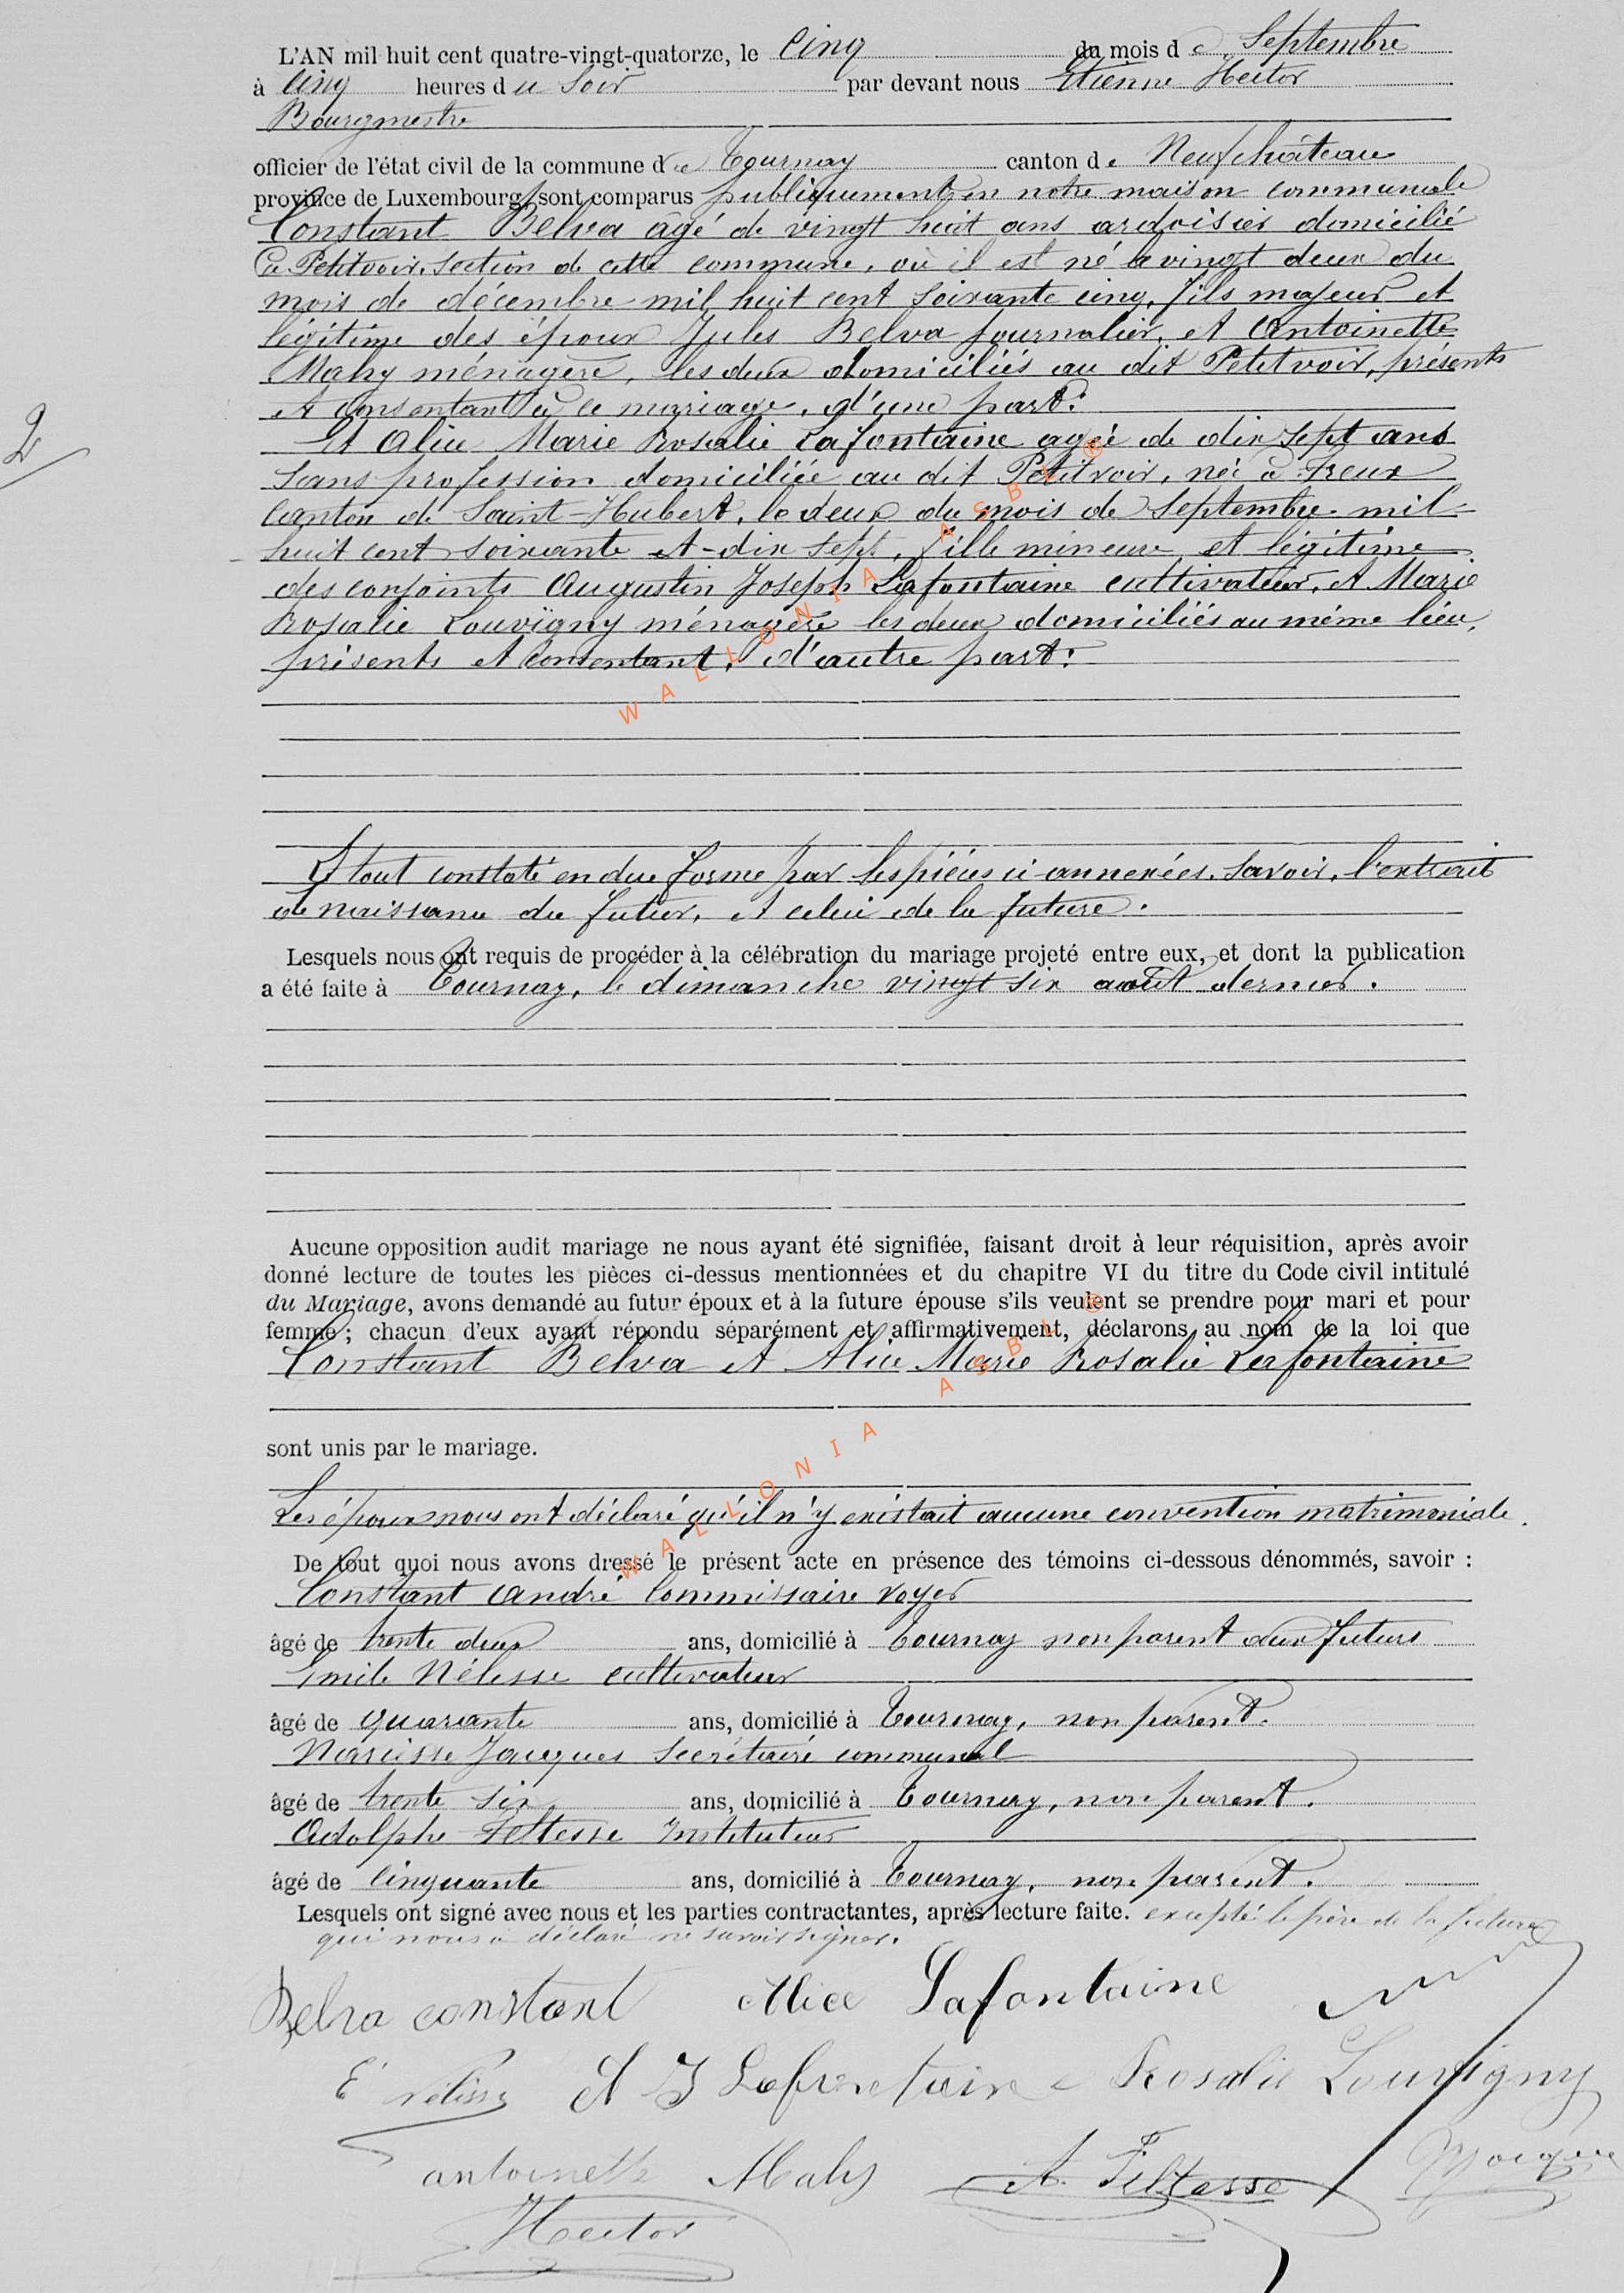 L'AN mil huit cent quatre-vingt-quatorze, le Cinq du mois de Septembre
à Cinq heures du Soir par devant nous Etienne Hector
Bourgmestre
officier de l'état civil de la commune de Tournay canton de Neufchâteau
province de Luxembourg, sont comparus publiquement en notre maison communale
Constant Belva âgé de vingt huit ans ardoisier domicilié
à Petitvoir, section de cette commune, où il est né le vingt deux du
mois de décembre mil huit cent soixante cinq, fils majeur et
légitime des époux Jules Belva journalier, et Antoinette
Mahy ménagère, les deux domiciliés au dit Petitvoir, présents
et consentant à ce mariage, d'une part:
2
Et Alice Marie Rosalie Lafontaine agée de dix sept ans
sans profession domiciliée au dit Petitvoir, née à Freux
canton de Saint-Hubert, le deux du mois de Septembre mil
huit cent soixante et-dix sept, fille mineure et légitime
des conjoints Augustin Joseph Lafontaine cultivateur, et Marie
Rosalie Louvigny ménagère les deux domiciliés au même lieu,
présents et consentant, d'autre part:
WALLONIA ASBL ®
Le tout constaté en due forme par les pièces ci-annexées, savoir, l'extrait
de naissance du futur, et celui de la future.
Lesquels nous ont requis de procéder à la célébration du mariage projeté entre eux, et dont la publication
a été faite à Tournay, le dimanche vingt six août dernier.
Aucune opposition audit mariage ne nous ayant été signifiée, faisant droit à leur réquisition, après avoir
donné lecture de toutes les pièces ci-dessus mentionnées et du chapitre VI du titre du Code civil intitulé
du Mariage, avons demandé au futur époux et à la future épouse s'ils veulent se prendre pour mari et pour
femme ; chacun d'eux ayant répondu séparément et affirmativement, déclarons au nom de la loi que
Constant Belva et Alice Marie Rosalie Lafontaine
sont unis par le mariage.
WALLONIA ASBL ®
Les époux nous ont déclaré qu'il n'y existait aucune convention matrimoniale.
De tout quoi nous avons dressé le présent acte en présence des témoins ci-dessous dénommés, savoir :
Constant André Commissaire voyer
âgé de trente deux ans, domicilié à Tournay non parent aux futurs
Emile Nélisse cultivateur
âgé de quarante ans, domicilié à Tournay, non parent.
Narcisse Jacques Secrétaire communal
âgé de trente six ans, domicilié à Tournay, non parent.
Adolphe Feltesse Instituteur
âgé de Cinquante ans, domicilié à Tournay, non parent.
Lesquels ont signé avec nous et les parties contractantes, après lecture faite. excepté le père de la future
qui nous a déclaré ne savoir signer.
Belva constant Alice Lafontaine
E Nélisse A J Lafontaine Rosalie Louvigny
antoinette Mahy A. Feltesse
Hector